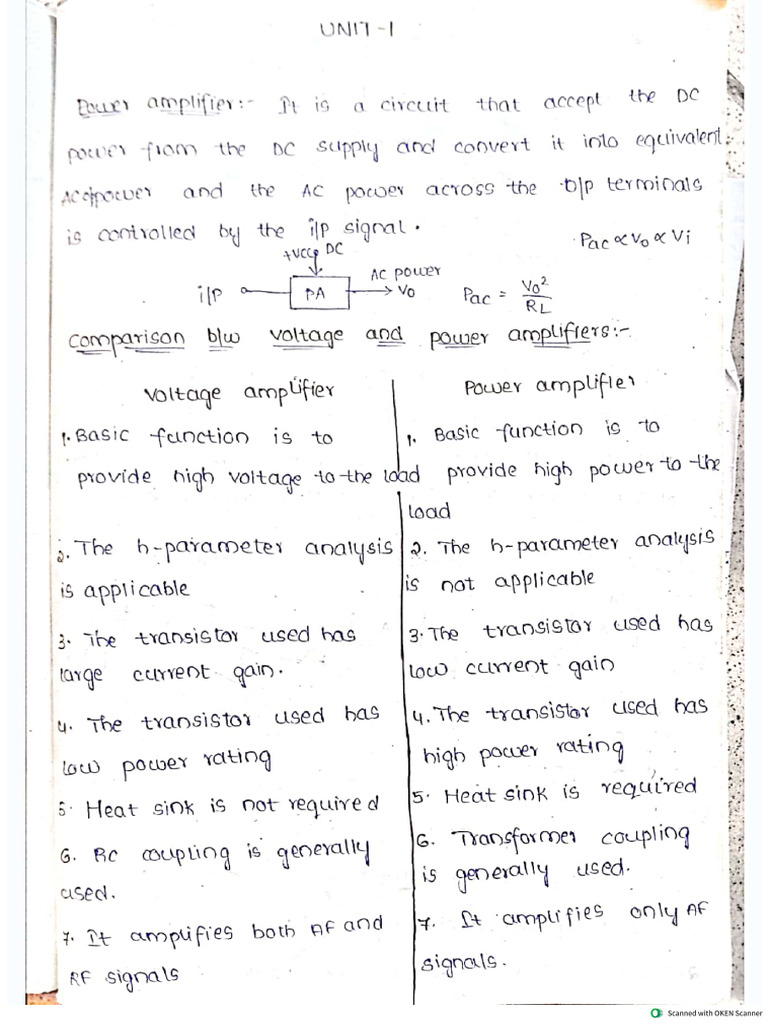 UNIT-1
Power amplifier:- It is a circuit that accept the DC
power from the DC supply and convert it into equivalent
AC power and the AC power across the O/p terminals
is controlled by the i/p signal.
Pac ∝ Vo ∝ Vi
+Vcc DC
i/p
PA
AC power
Vo
Pac = Vo²/RL
Comparison b/w voltage and power amplifiers:-
Voltage amplifier
1. Basic function is to
provide high voltage to the load
2. The h-parameter analysis
is applicable
3. The transistor used has
large current gain.
4. The transistor used has
low power rating
5. Heat sink is not required
6. RC coupling is generally
used.
7. It amplifies both AF and
RF signals
Power amplifier
1. Basic function is to
provide high power to the
load
2. The h-parameter analysis
is not applicable
3. The transistor used has
low current gain
4. The transistor used has
high power rating
5. Heat sink is required
6. Transformer coupling
is generally used.
7. It amplifies only AF
signals.
Scanned with OKEN Scanner